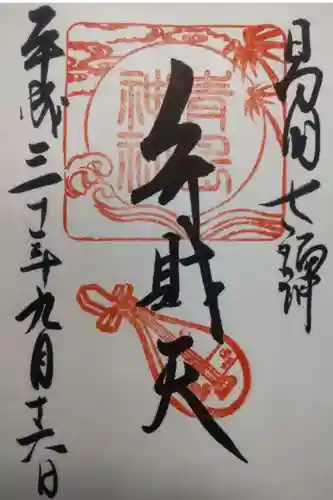 日向七福神
弁財天
青島
神社
平成三十年九月十六日